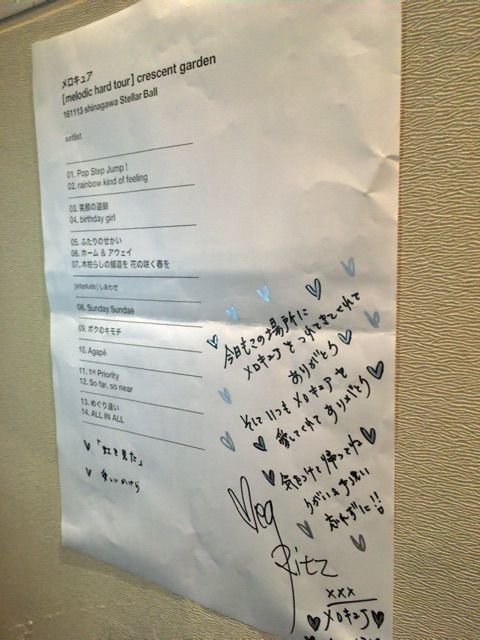 メロキュア
[melodic hard tour] crescent garden
161113 shinagawa Stellar Ball
setlist
01. Pop Step Jump !
02. rainbow kind of feeling
03. 笑顔の連鎖
04. birthday girl
05. ふたりのせかい
06. ホーム & アウェイ
07. 木枯らしの舗道を 花の咲く春を
[interlude] しあわせ
08. Sunday Sundae
09. ボクのキモチ
10. Agapē
11. 1st Priority
12. So far, so near
13. めぐり逢い
14. ALL IN ALL
♥「虹を見た」
♥ 愛しいかけら
今日もこの場所に
メロキュアをつれてきてくれて
ありがとう
そしていつもメロキュアを
愛してくれてありがとう
気をつけて帰ってね
うがい&手洗い
忘れずに!!
Meg
Ritz
xxx
♥メロキュア♥